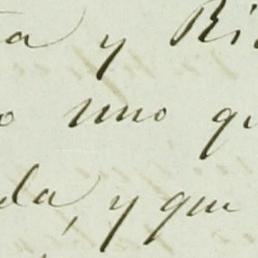 ta y Ri
o uno qu
da, y que